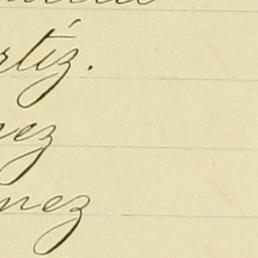 rtíz.
nez
nez